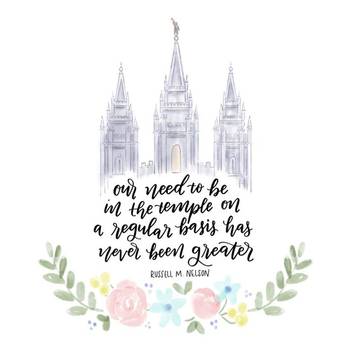 our need to be
in the temple on
a regular basis has
never been greater
RUSSELL M. NELSON